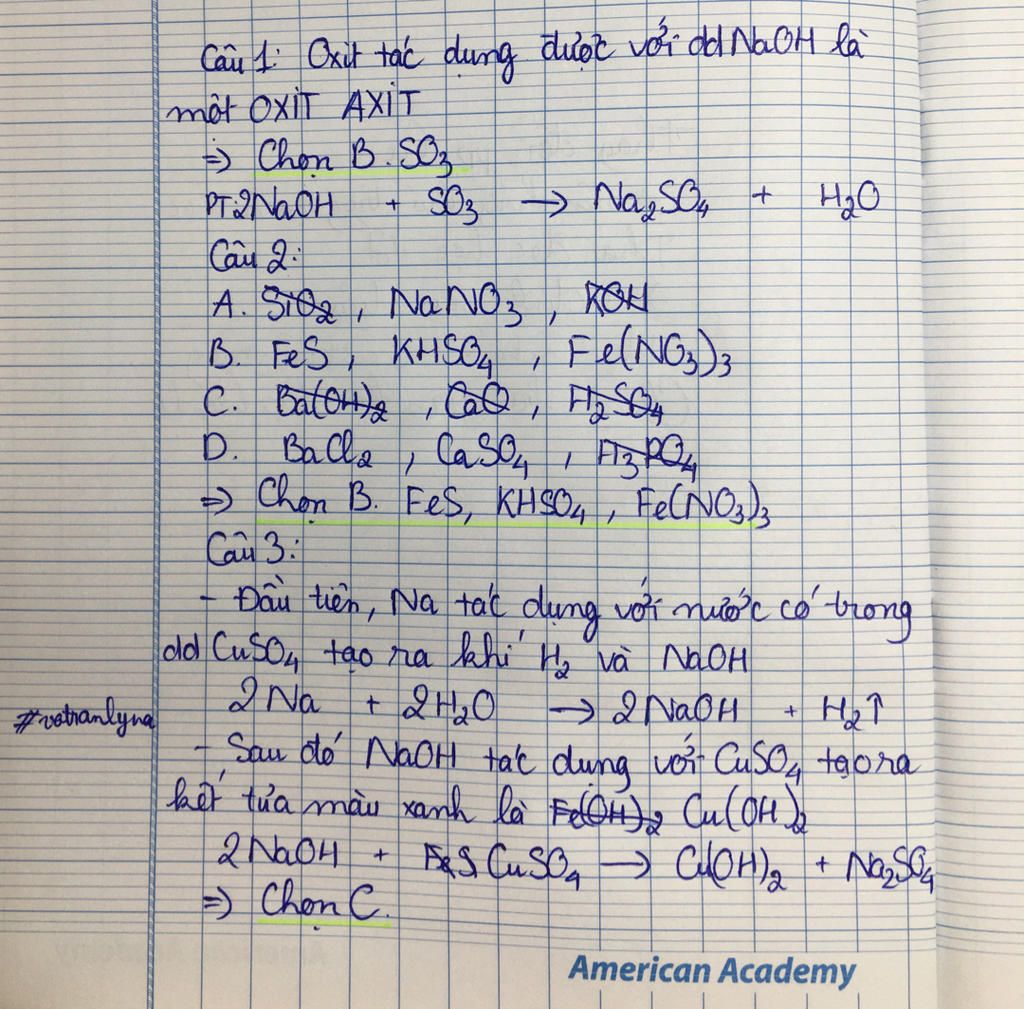 Câu 1: Oxit tác dụng được với dd NaOH là
một OXIT AXIT
=> Chọn B. SO3
PT: 2NaOH + SO3 → Na2SO4 + H2O
Câu 2:
A. SiO2, NaNO3, KOH
B. FeS, KHSO4, Fe(NO3)3
C. Ba(OH)2, CaO, H2SO4
D. BaCl2, CaSO4, H3PO4
=> Chọn B. FeS, KHSO4, Fe(NO3)3
Câu 3:
- Đầu tiên, Na tác dụng với nước có trong
dd CuSO4 tạo ra khí H2 và NaOH
2Na + 2H2O → 2NaOH + H2↑
#votranlyna
- Sau đó NaOH tác dụng với CuSO4 tạo ra
kết tủa màu xanh là Fe(OH)2 Cu(OH)2
2NaOH + FeS CuSO4 → Cu(OH)2 + Na2SO4
=> Chọn C.
American Academy